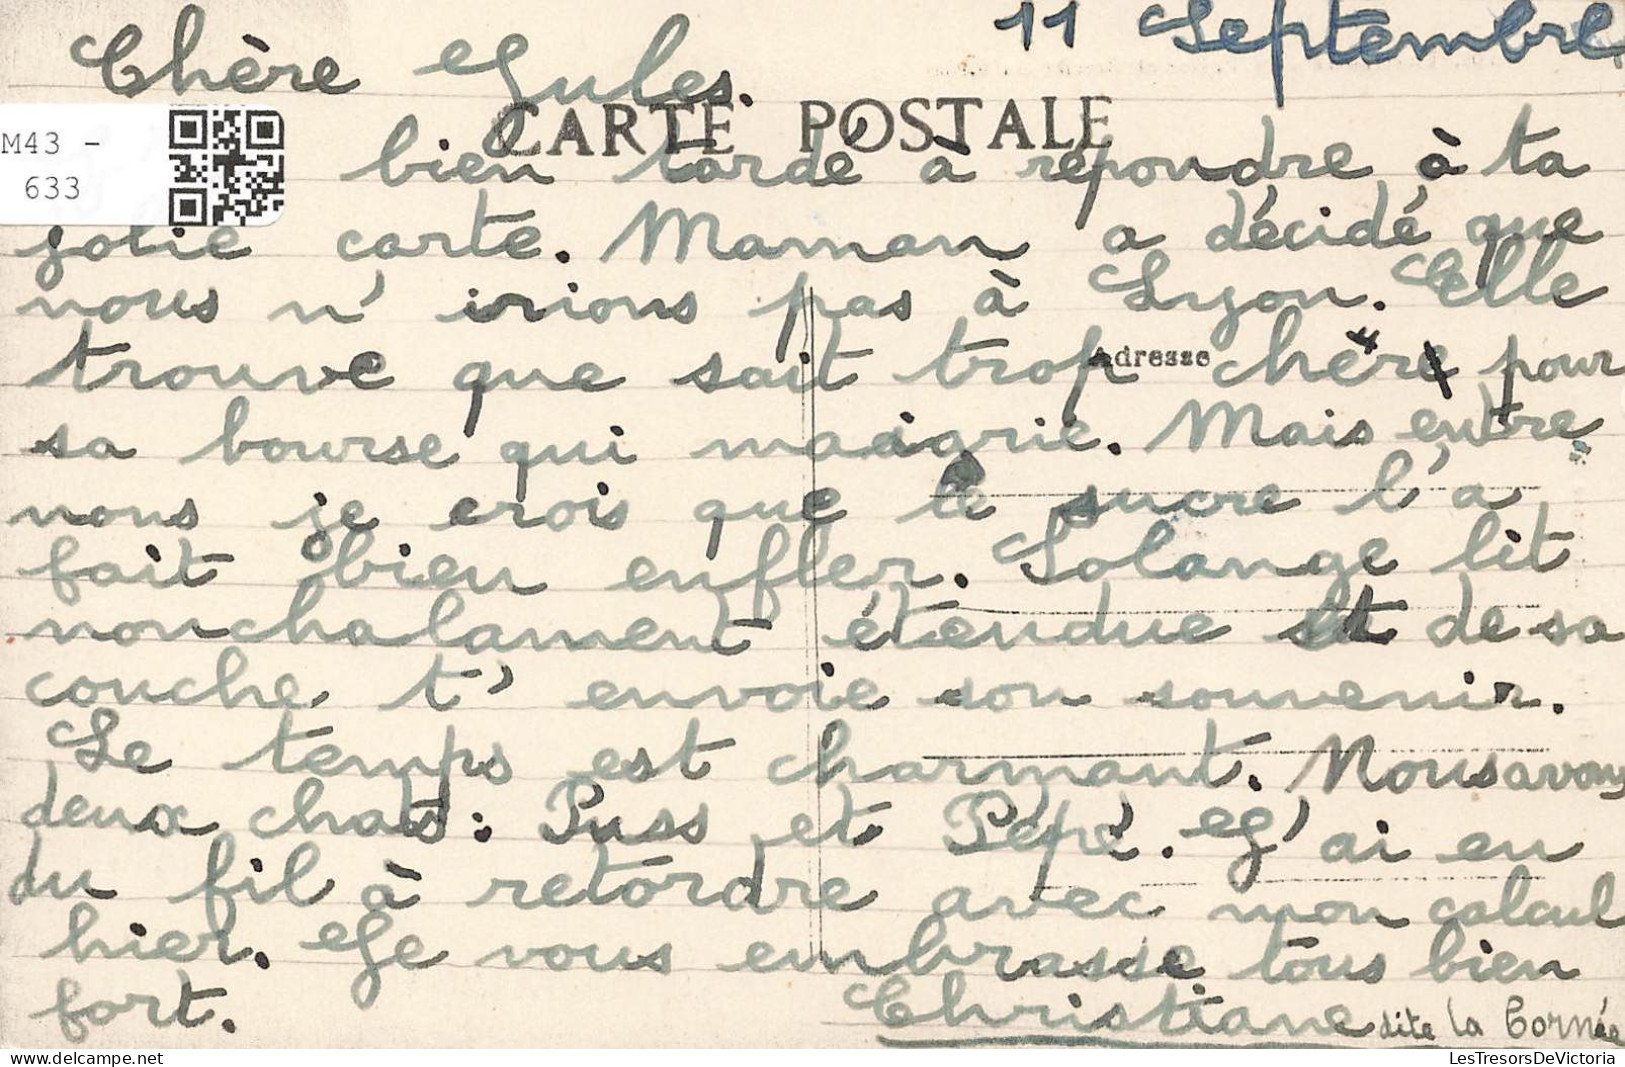 11 Septembre
Chère Gules.
CARTE POSTALE
M43 -
633
bien tardé à répondre à ta
jolie carte. Maman a décidé que
nous n' irions pas à Lyon. Elle
trouve que sait trop chère pour
Adresse
sa bourse qui maigrie. Mais entre
nous je crois que le sucre l'a
fait bien enfler. Solange lit
nonchalament étendue et de sa
couche t' envoie son souvenir.
Le temps est charmant. Nous avons
deux chats : Puss et Pépé. J'ai eu
du fil à retordre avec mon calcul
hier. Je vous embrasse tous bien
fort. Christiane dite la Cornée
LesTresorsDeVictoria